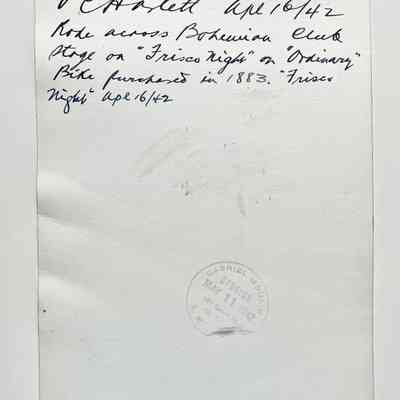 Haslett Apl 16/42
Rode across Bohemian Club
Stage on "Frisco Night" on "Ordinary"
Bike purchased in 1883. "Frisco
Night" Apl 16/42
GABRIEL MOULIN
STUDIOS
MAY 11 1942